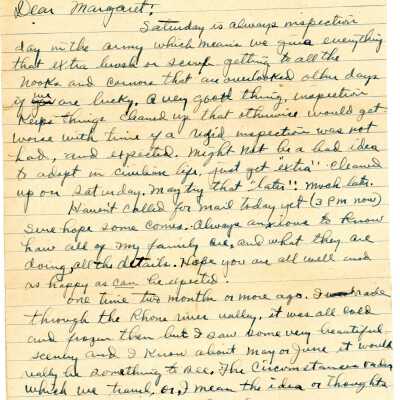 Dear Margaret:
Saturday is always inspection
day in the army which means we give everything
that extra brush or scrub getting to all the
nooks and corners that are overlooked other days
if we are lucky. A very good thing, inspection
keeps things cleaned up that otherwise would get
worse with time if a rigid inspection was not
had, and expected. Might not be a bad idea
to adopt in civilian life, just get "extra" cleaned
up on Saturday. May try that "later"! Much later.
Haven't called for mail today yet (3 PM now)
Sure hope some comes. Always anxious to know
how all of my family are, and what they are
doing, all the details. Hope you are all well and
as happy as can be expected.
One time two month or more ago. I rode
through the Rhone river valley, it was all cold
and frozen then but I saw some very beautiful
scenery and I know about May or June it would
really be something to see. The Circumstances under
which we travel, or, I mean the idea or thoughts